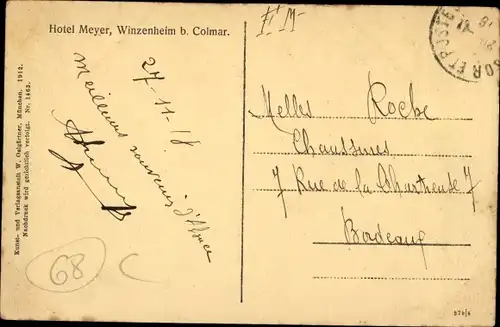 Hotel Meyer, Winzenheim b. Colmar.
27-11-18
Meilleurs souvenirs d'Alsace
Kunst- und Verlagsanstalt W. Oelgärtner, München. 1912.
Nachdruck wird gerichtlich verfolgt. Nr. 1463.
68
F M
SOR ET POSTES
Melles Roche
Chaussures
7 Rue de la Chartreuse 7
Bordeaux